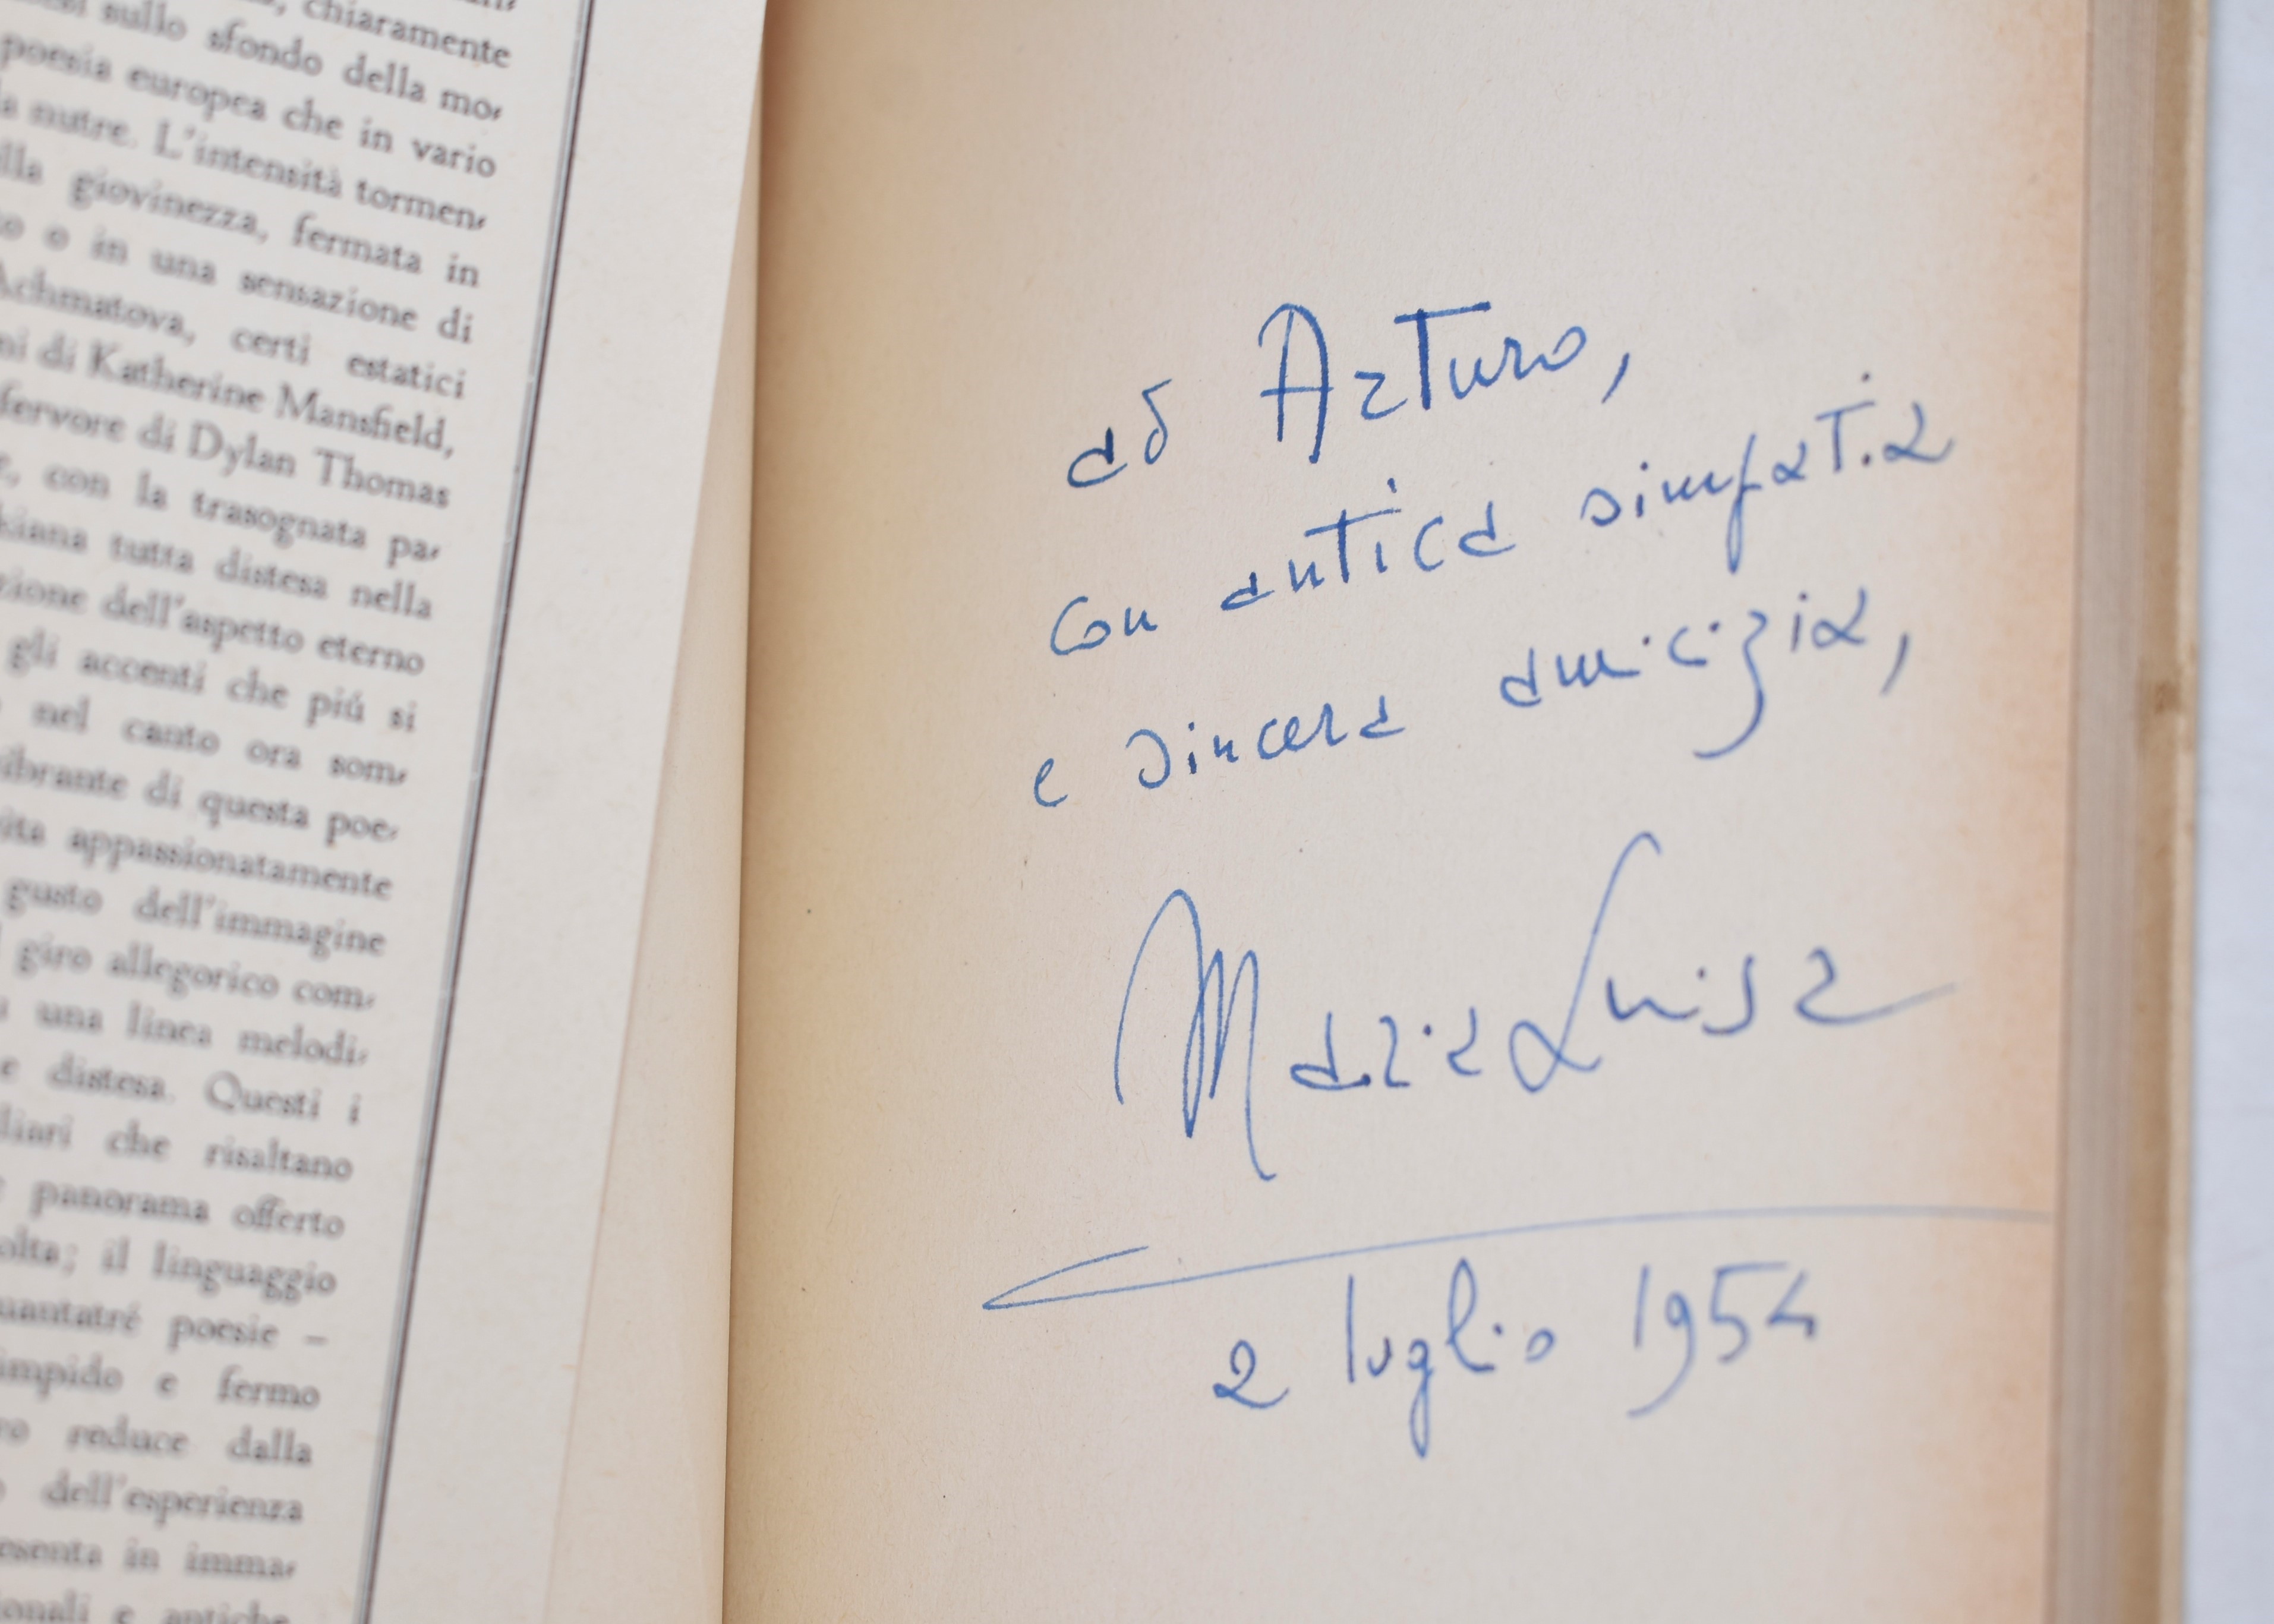 chiaramente
sullo sfondo della mo-
poesia europea che in vario
nutre. L'intensità tormen-
giovinezza, fermata in
o in una sensazione di
Achmatova, certi estatici
di Katherine Mansfield,
fervore di Dylan Thomas
con la trasognata pa-
tutta distesa nella
dell'aspetto eterno
gli accenti che piú si
nel canto ora som-
di questa poe-
appassionatamente
gusto dell'immagine
giro allegorico com-
una linea melodi-
e distesa. Questi i
che risaltano
panorama offerto
il linguaggio
poesie –
e fermo
reduce dalla
dell'esperienza
in imma-
e antiche
ad Arturo,
con antica simpatia
e sincera amicizia,
Maria Luisa
2 luglio 1954